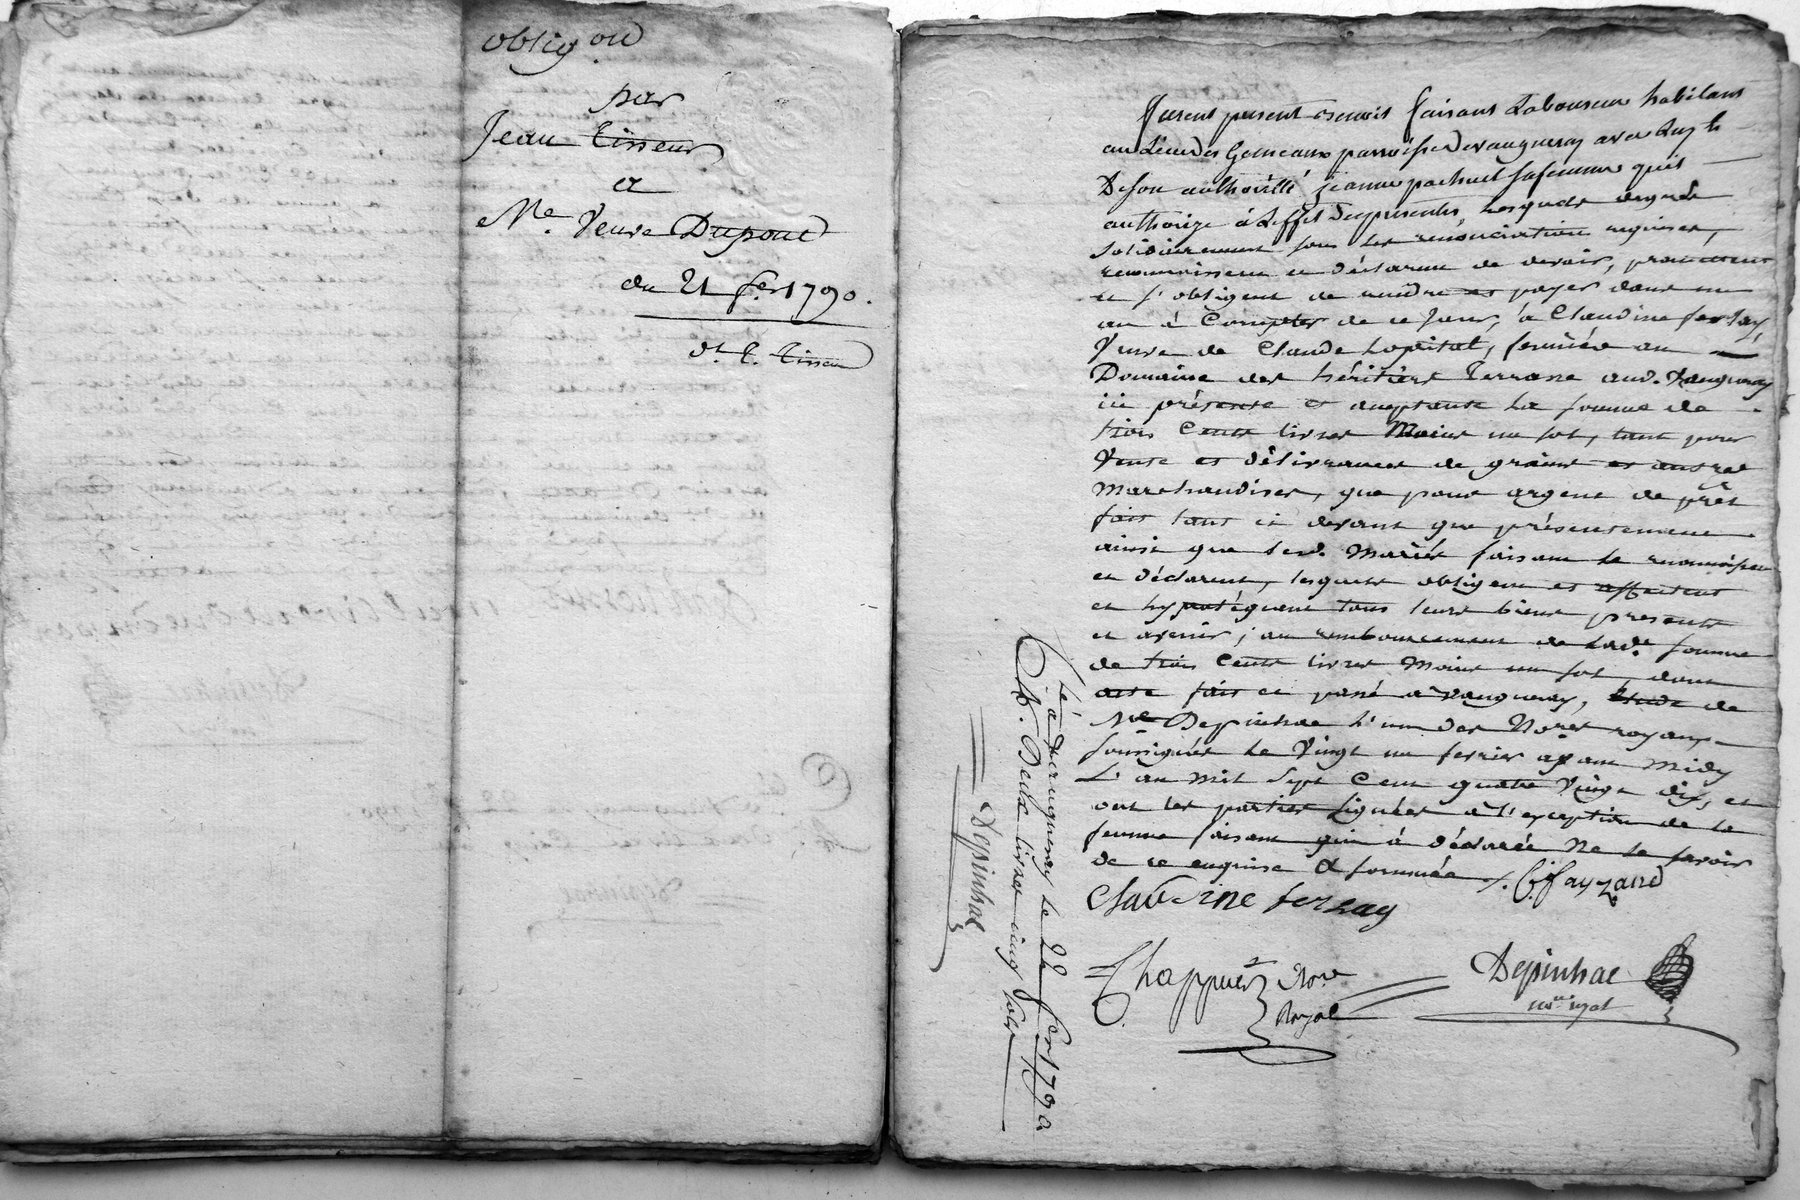 oblig.on
par
Jean Tisseur
a
Me. Veuve Dupont
du 21 fer. 1790.
dt. C. Tisseur
furent present Benoit faisant Laboureur habitant
au Lieu des Gemeaux parroisse de vaugneray avec Luy &
De Son authorité jeanne pachuel sa femme quil
authorize à L'effet des presentes, Lesquels de gré
Solidairement sous les renonciations requises,
reconnoissent et déclarent de devoir, promettent
et s'obligent de rendre et payer dans un
an à Compter de ce jour, à Claudine ferlay,
Veuve de Claude Lopital, fermière au
Domaine des héritiers Terrasse aud. Vaugneray
ici présente et acceptante la somme de
trois Cents livres Moins un sol, tant pour
Vente et délivrances de grains et autres
Marchandises, que pour argent de prêt
fait tant ci devant que présentement
ainsi que lesd. Mariés faisant le reconnoissent
et déclarent, lesquels obligent et affectent
et hypotéquent tous leurs biens presents
et avenir, au remboursement de lade. somme
de trois Cents livres Moins un sol, dont
acte fait et passé a Vaugneray, Etude de
Me Depinhac l'un des Nores royaux
soussignés le Vingt un fevrier apant Midy
L'an Mil Sept Cent quatre Vingt dix, et
ont les parties signées à l'exception de la
femme faisant qui à déclarée Ne le savoir
de ce enquise & sommée
B. fayzand
Claudine ferlay
Chappuis Nore
Royal
Depinhac
nore. royal
Clé à Vaugneray le 22 fer 1790
R. Deux livres cinq sols
Depinhac